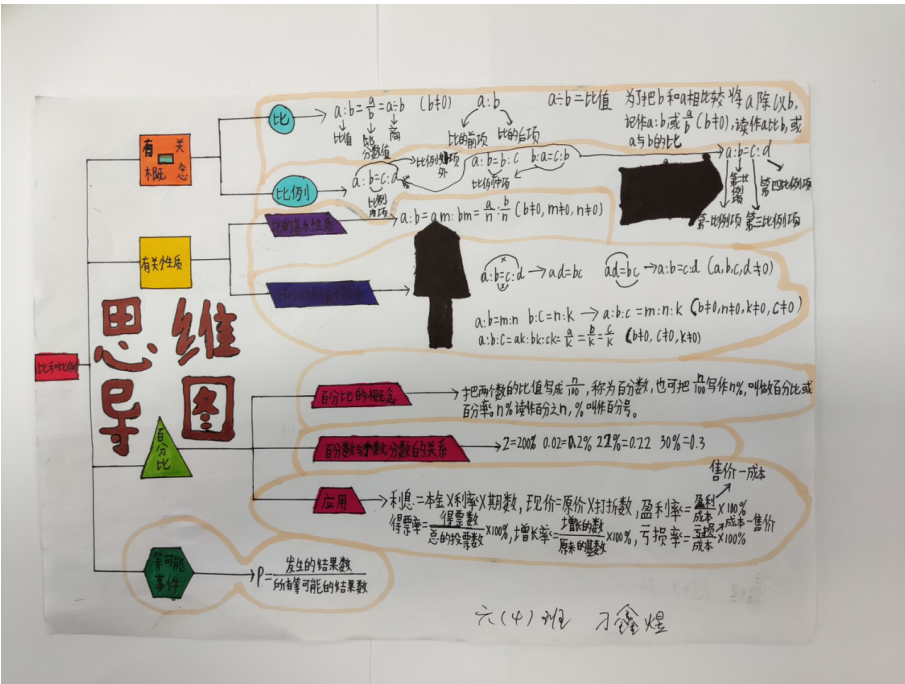 比
a:b=a/b=a÷b (b≠0)
比值
分数值
商
a:b
比的前项 比的后项
a÷b=比值
为了把b和a相比较 将a除以b,
记作a:b,或a/b(b≠0),读作a比b,或
a与b的比
有关
概念
比例
a:b=c:d
比例内项
比例外项
外
a:b=b:c b:a=c:b
比例中项
a:b=c:d
第一比例项 第三比例项
第四比例项
比的基本性质
a:b=am:bm=a/n:b/n (b≠0,m≠0,n≠0)
有关性质
a:b=c:d→ad=bc ad=bc→a:b=c:d (a,b,c,d≠0)
a:b=m:n b:c=n:k→a:b:c=m:n:k (b≠0,n≠0,k≠0,c≠0)
a:b:c=ak:bk:ck=a/k=b/k=c/k (b≠0,c≠0,k≠0)
思维
导图
比和比例
百分比的概念
把两个数的比值写成n/100,称为百分数,也可把n/100写作n%,叫做百分比或
百分率。n%读作百分之n,%叫作百分号。
百分比
百分数与小数,分数的关系
2=200% 0.02=0.2% 22%=0.22 30%=0.3
售价-成本
应用
利息=本金X利率X期数,现价=原价X打折数,盈利率=盈利/成本X100%
成本-售价
得票率=得票数/总的投票数X100%,增长率=增长的数/原来的基数X100%,亏损率=亏损/成本X100%
等可能
事件
P=发生的结果数/所有等可能的结果数
六(4)班 刁鑫煜